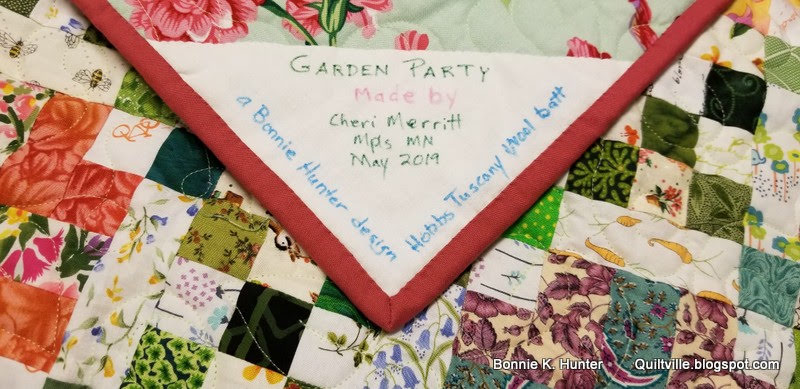 GARDEN PARTY
Made by
Cheri Merritt
Mpls MN
May 2019
a Bonnie Hunter design
Hobbs Tuscany Wool batt
Bonnie K. Hunter Quiltville.blogspot.com